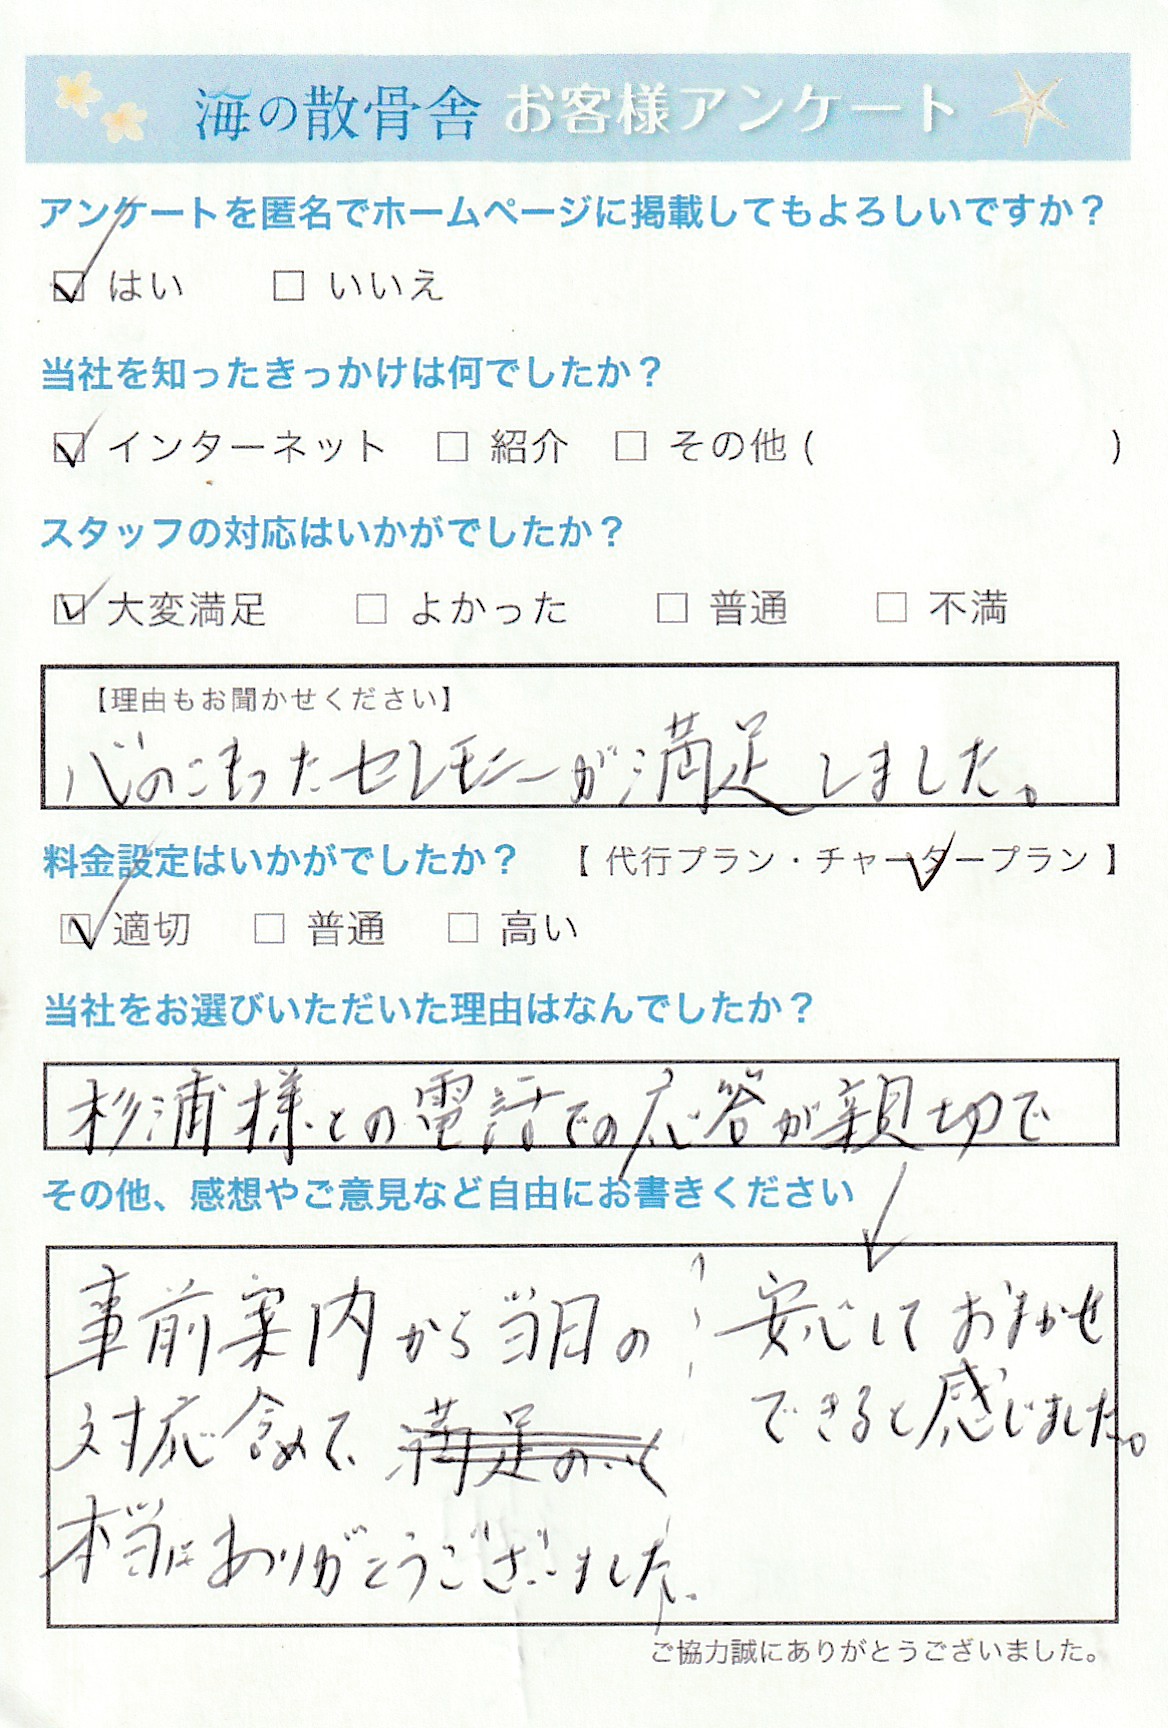 海の散骨舎 お客様アンケート
アンケートを匿名でホームページに掲載してもよろしいですか？
☑ はい □ いいえ
当社を知ったきっかけは何でしたか？
☑ インターネット □ 紹介 □ その他 ( )
スタッフの対応はいかがでしたか？
☑ 大変満足 □ よかった □ 普通 □ 不満
【理由もお聞かせください】
心のこもったセレモニーが満足しました。
料金設定はいかがでしたか？ 【 代行プラン・チャータープラン 】
☑ 適切 □ 普通 □ 高い
当社をお選びいただいた理由はなんでしたか？
杉浦様との電話での応答が親切で
安心しておまかせ
できると感じました。
その他、感想やご意見など自由にお書きください
事前案内から当日の
対応含めて、満足のいく
本当にありがとうございました。
ご協力誠にありがとうございました。